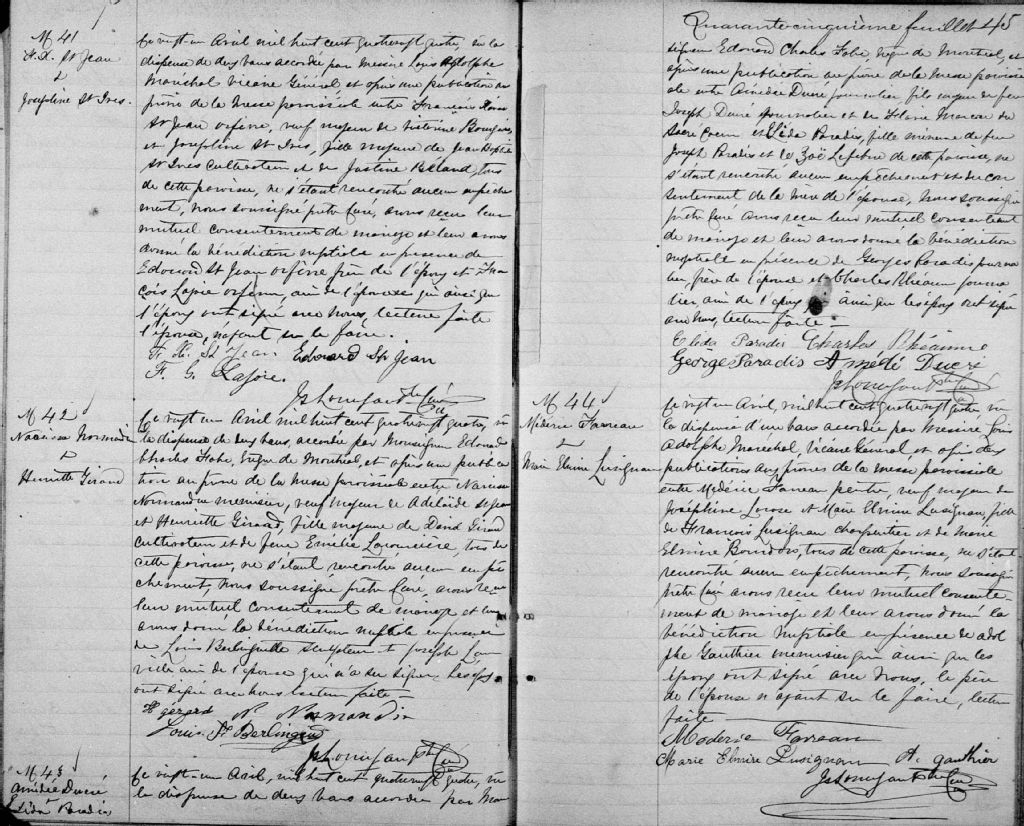 M 41
F. X. St Jean
&
Josephine St Ives.
Ce vingt un Avril mil huit cent quatrevingt quatre, vu la
dispense de deux bans accordée par Messire Louis Adolphe
Maréchal Vicaire Général et après une publication au
prône de la Messe paroissiale entre François Xavier
St Jean orfèvre, veuf majeur de Victorine Bourgeois
et Josephine St Ives, fille majeure de Jean Bapte
St Ives cultivateur et de Justine Rolland, tous
de cette paroisse, ne s'étant rencontré aucun empêche
ment, nous soussigné prêtre Curé, avons reçu leur
mutuel consentement de mariage et leur avons
donné la bénédiction nuptiale en présence de
Edouard St Jean orfèvre frère de l'époux et Fran
çois Lajoie orfèvre, ami de l'épouse qui ainsi que
l'époux ont signé avec nous, lecture faite
l'épouse, n'ayant su le faire.
F. X. St Jean Edouard St Jean
F. G. Lajoie.
Ptre Curé
M 42
Narcisse Normandin
&
Henriette Girard
Ce vingt un Avril mil huit cent quatrevingt quatre, vu
la dispense de deux bans, accordée par Monseigneur Edouard
Charles Fabre, évêque de Montréal, et après une publica
tion au prône de la Messe paroissiale entre Narcisse
Normandin menuisier, veuf majeur de Adélaïde
et Henriette Girard, fille majeure de David Girard
cultivateur et de feue Emélie, tous de
cette paroisse, ne s'étant rencontré aucun empê
chement, nous soussigné prêtre Curé avons reçu
leur mutuel consentement de mariage et leur
avons donné la bénédiction nuptiale en présence
de Louis Berlinguette sculpteur et Joseph
ville ami de l'épouse qui n'a su signer. Les époux
ont signé avec nous lecture faite—
H gérard N. Normandin
Louis Berlinguet
Ptre Curé
M 43
Amédée Ducré
&
Elida Paradis
Ce vingt-un Avril, mil huit cent quatrevingt quatre, vu
la dispense de deux bans accordée par Mon
Quarante cinquième feuillet 45
seigneur Edouard Charles Fabre, évêque de Montréal, et
après une publication au prône de la messe paroissi
ale entre Amédée Ducré journalier, fils majeur de feu
Joseph Ducré journalier et de Flavie Marceau du
Sacré Coeur et Elida Paradis, fille mineure de feu
Joseph Paradis et de Zoë Lefebvre de cette paroisse, ne
s'étant rencontré aucun empêchement et du con
sentement de la mère de l'épouse, nous soussigné
prêtre Curé avons reçu leur mutuel consentement
de mariage et leur avons donné la bénédiction
nuptiale en présence de Georges Paradis journa
lier, frère de l'épouse et Charles Rhéaume journa
lier, ami de l'époux ainsi que les époux ont signé
avec nous, lecture faite—
Elida Paradis Charles Rhéaume
George Paradis Amédé Ducré
Ptre Curé
M 44
Médéric Favreau
&
Marie Elmire Lusignan
Ce vingt un Avril, mil huit cent quatrevingt quatre vu
la dispense d'un bans accordée par Messire Louis
Adolphe Maréchal, Vicaire Général et après des
publications aux prônes de la messe paroissiale
entre Médéric Favreau peintre, veuf majeur de
Josephine Larose et Marie Elmire Lusignan, fille
de François Lusignan charpentier et de Marie
Elmire Bourdon, tous de cette paroisse, ne s'étant
rencontré aucun empêchement, nous soussigné
prêtre Curé avons reçu leur mutuel consente
ment de mariage et leur avons donné la
bénédiction nuptiale en présence de Adol
phe Gauthier menuisier qui ainsi que les
époux ont signé avec nous, le père
de l'épouse n'ayant su le faire, lecture
faite
Moderic Favreau
Marie Elmire Lusignan A. gauthier
Ptre Curé